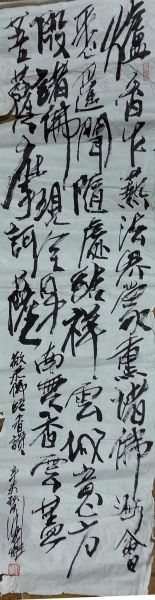 爐香乍爇法界蒙熏諸佛海會
悉遙聞隨處結祥雲誠意方
殷諸佛現全身南無香雲蓋
菩薩摩訶薩
香讚